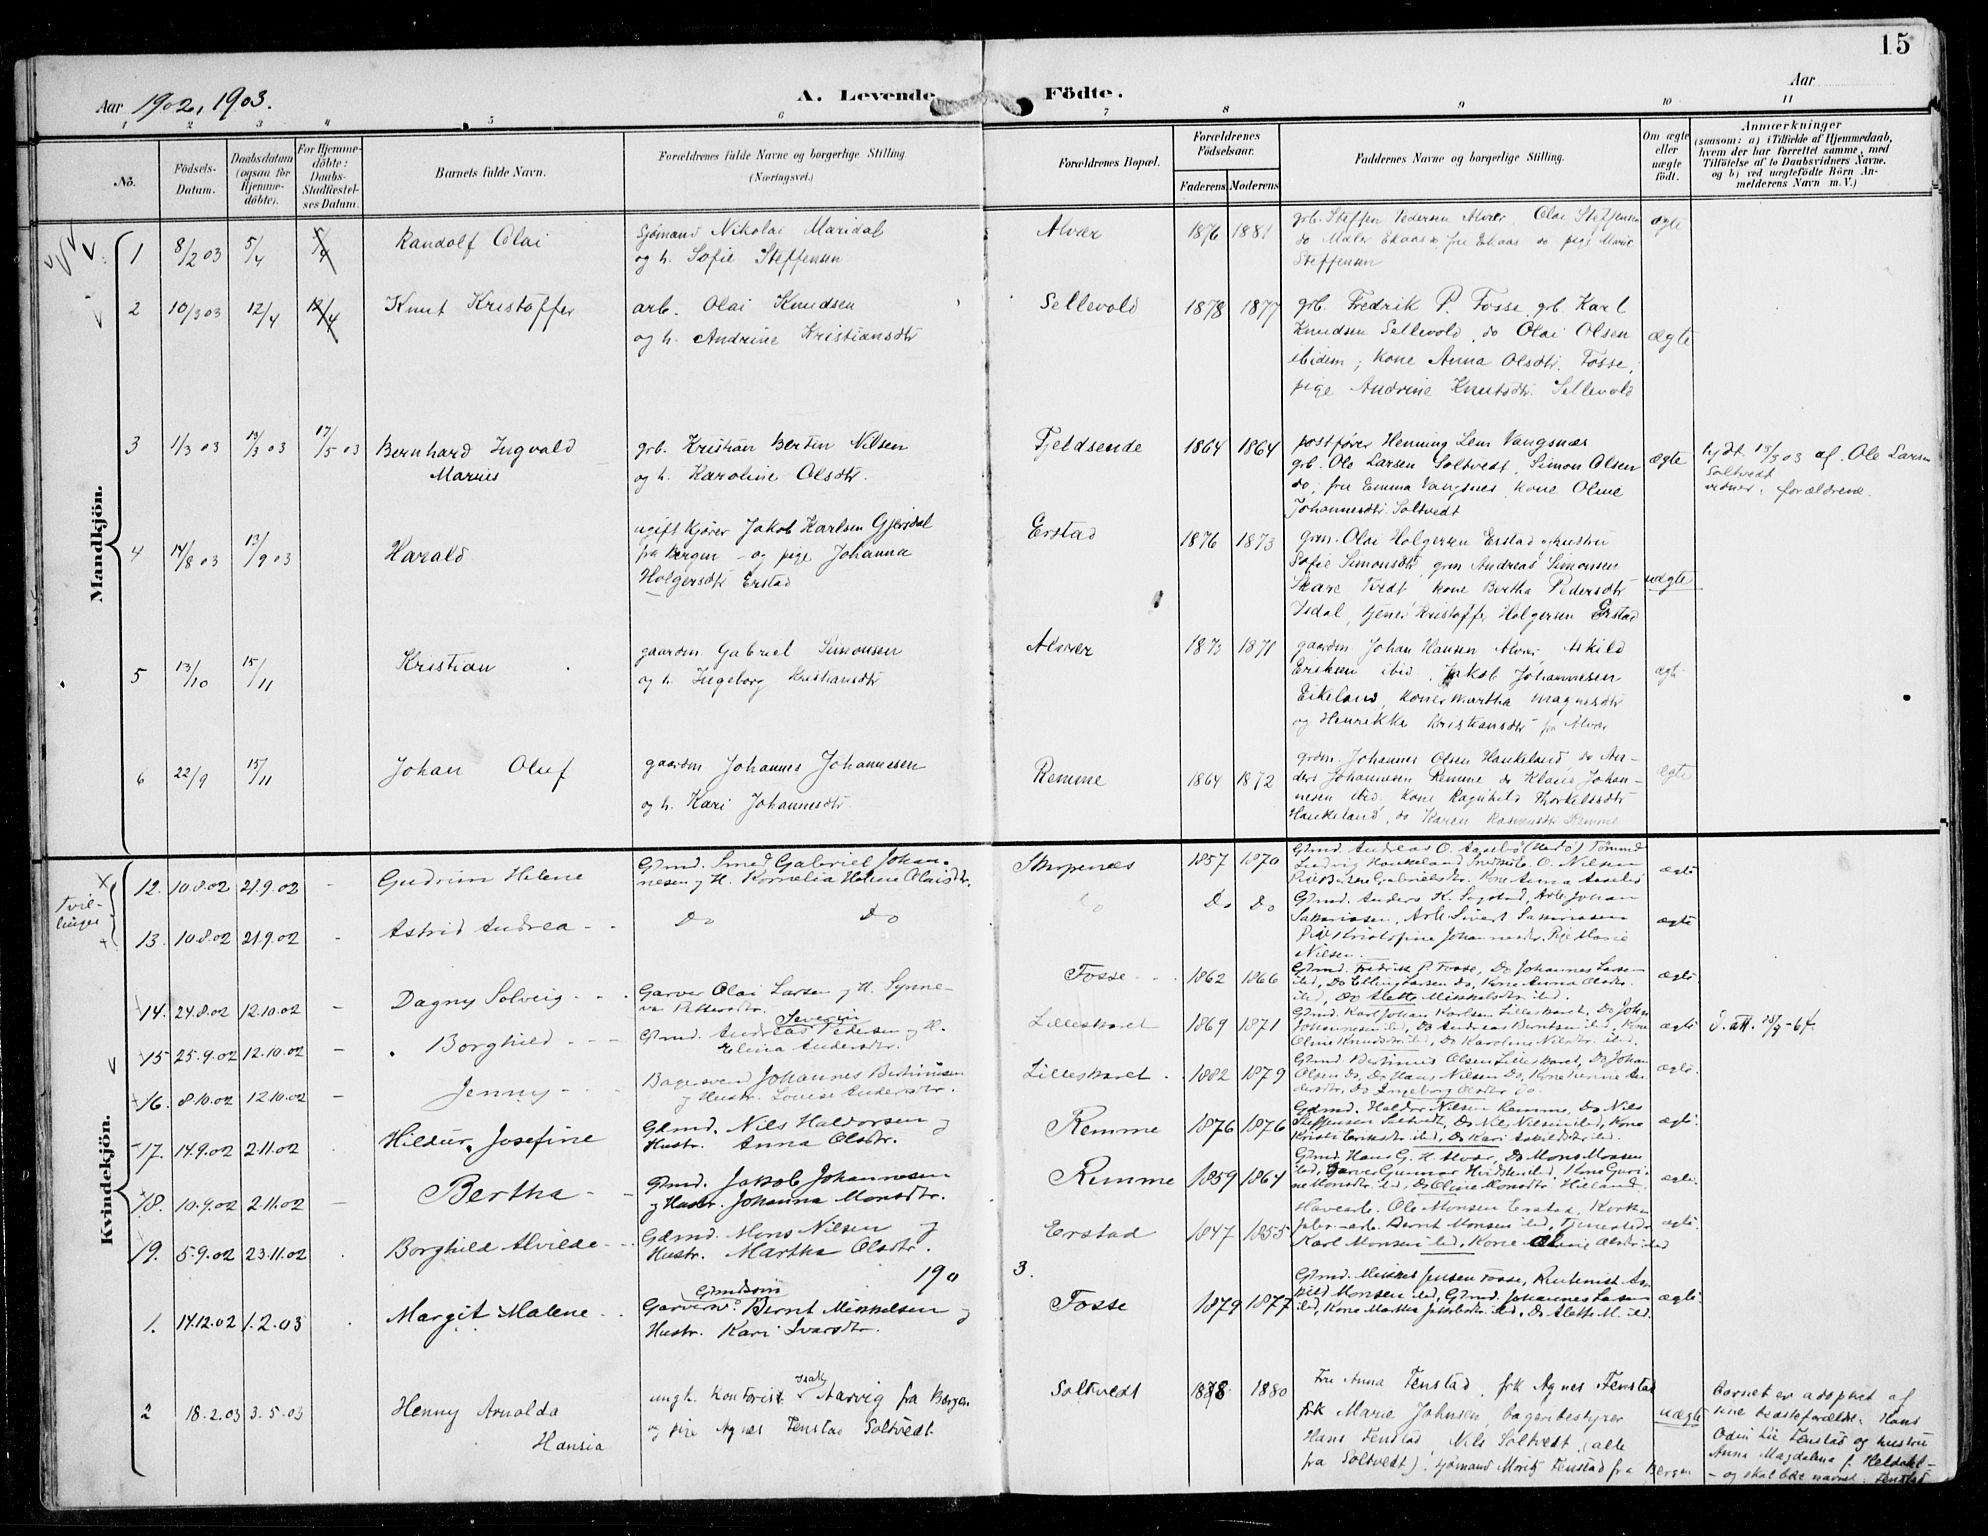 15
Aar 1902, 1903.
A. Levende Födte.
Aar
1 2 3 4 5 6 7 8 9 10 11
No.
Födsels-Datum.
Daabsdatum (ogsaa for Hjemme-döbte).
For Hjemme-döbte: Daabs-Stadfæstel-ses Datum.
Barnets fulde Navn.
Forældrenes fulde Navne og borgerlige Stilling (Næringsvei.)
Forældrenes Bopæl.
Forældrenes Födselsaar.
Faderens Moderens
Faddernes Navne og borgerlige Stilling.
Om ægte eller uægte födt.
Anmærkninger
(saasom: a) i Tilfælde af Hjemmedaab,
hvem der har forrettet samme, med
Tilföielse af to Daabsvidners Navne,
og b) ved uægtefödte Börn An-
melderens Navn m. V.)
Mandkjön.
1 8/2 03 5/4 5/4 Randolf Olai
Sjømand Nikolai Maridal
og h. Sofie Steffensen
Alvær 1876 1881
grb. Steffen Pedersen Alver, Olai Steffensen
do Maler Ekaas fru Ekaas do pige Marie
Steffensen
ægte
2 10/3 03 12/4 12/4 Knut Kristoffer
arb. Olai Knudsen
og h. Andrine Kristiansdtr
Sellevold 1878 1877
grb. Fredrik P. Fosse, grb Karl
Knudsen Sellevold, do Olai Olsen
ibidem; kone Anna Olsdtr. Fosse;
pige Andrine Knutsdtr. Sellevold
ægte
3 1/3 03 13/3 03 17/5 03 Bernhard Ingvald
Marius
grb. Kristian Bertin Nilsen
og h. Karoline Olsdtr.
Fjeldsende 1864 1864
postfører Henning Lem Vangsnæs
grb. Ole Larsen Soltvedt, Simon Olsen
do; fru Emma Vangsnes, kone Oline
Johannesdtr. Soltvedt
ægte
hjdt. 13/3 03 af Ole Larsen
Soltvedt
vidner: forældrene.
4 14/8 03 13/9 03 Harald
ugift kjører Jakob Karlsen Gjerdal
fra Bergen og pige Johanna
Holgersdtr Erstad
Erstad 1876 1873
grm. Olai Holgersen Erstad, hustru
Sofie Simonsdtr, grm Andreas Simonsen
Skare Tvedt, kone Bertha Pedersdtr
Isdal, tjener Kristoffer Holgersen Erstad
uægte
5 13/10 15/11 Kristian
gaardm. Gabriel Simonsen
og h. Ingeborg Kristiansdtr
Alvær 1873 1871
gaardm. Johan Hansen Alver, Askild
Eriksen ibid, Jakob Johannesen
Eikeland, koner Martha Magnesdtr
og Henrikke Kristiansdtr fra Alvær
ægte
6 22/9 15/11 Johan Oluf
gaardm Johannes Johannesen
og h. Kari Johannesdtr.
Remme 1864 1872
grdm. Johannes Olsen Haukeland do An-
ders Johannesen Remme do Klaus Johan-
nesen ibid. kone Ragnhild Thorkelsdtr
Haukeland, do Karen Rasmusdtr Remme
ægte
Kvindekjön.
Tvil-
linger
12. 10.8.02 21.9.02 Gudrun Helene
Gmd. Smed Gabriel Johan-
nesen og H. Kornelia Helene Olaisdtr.
Skarpenæs 1857 1870
ægte
13. 10.8.02 21.9.02 Astrid Andrea
Do Do
Do Do Do
Gmd. Anders K. Sagstad, Arb. Johan
Sakariasen, Arb. Sivert Sakariasen
Pige Kristofine Johannesdtr. Pige Marie
Nilsen.
ægte
14. 24.8.02 12.10.02 Dagny Solveig
Garver Olai Larsen og H. Synne-
va Pettersdtr.
Fosse 1862 1866
Gmd. Fredrik P. Fosse, Do Johannes Larsen
ibd, Do Elling Larsen do, Kone Anna Olsdtr.
ibd, Do Alette Mikkelsdtr ibd.
ægte
15 25.9.02 12.10.02 Borghild
Gmd. Andreas Severin Pedersen og H.
Elina Andersdtr.
Lilleskaret 1869 1871
Gmd. Karl Johan Karlsen Lilleskaret, Do Johan
Johannesen ibd, Do Andreas Berntsen ibd, Kone
Oline Knudsdtr ibd, Do Karoline Nilsdtr. ibd.
ægte
16. 8.10.02 12.10.02 Jenny
Bagersvend Johannes Bertinusen
og Hustr. Lovise Andersdtr.
Lilleskaret 1882 1879
Gmd. Bertinus Olsen Lilleskaret, Do Johan
Olsen do, Do Hans Nilsen Do, Kone
Do Ingeborg Olsdtr Do.
ægte
17. 14.9.02 2.11.02 Hildur Josefine
Gmd. Nils Haldorsen og
Hustr. Anna Olsdtr.
Remme 1876 1876
Gmd. Haldor Nilsen Remme, Do Nils
Steffensen Soltvedt, Do Nils Nilsen ibd, Kone
Kristi Eriksdtr ibd, Do Kari Askildsdtr ibd.
ægte
18. 10.9.02 2.11.02 Bertha
Gmd. Jakob Johannesen
og Hustr. Johanna Monsdtr.
Remme 1859 1864
Gmd. Hans G. H. Alvær, Do Mons Monsen
ibd, Garver Gunnar Hvidsten ibd, Kone Guri-
ne Monsdtr ibd, Do Oline Monsdtr Hieland.
ægte
19. 5.9.02 23.11.02 Borghild Alvilde
Gdmd. Mons Nilsen og
Hustr. Martha Olsdtr.
Erstad 1847 1855
Havearb. Ole Monsen Erstad,
arb. Bernt Monsen ibd, Tjenestedr.
Karl Monsen ibd, Kone Oline Olsdtr ibd
ægte
1903.
1. 14.12.02 1.2.03 Margit Malene
Gmdsøn
Garversv. Bernt Mikkelsen og
Hustr. Kari Ivarsdtr.
Fosse 1879 1877
Gmd. Mikkel Jensen Fosse, Rentenist As-
kild Monsen ibd, Gmd. Johannes Larsen
ibd, Kone Martha Jakobsdtr. ibd, Do Alette M. ibd.
ægte
2 18.2.03 3.5.03 Henny Arnolda
Hansia
ungk. Kontorist Isak Aarvig fra Bergen
og pige Agnes Fenstad Soltvedt
Soltvedt 1878 1880
Fru Anna Fenstad, frk Agnes Fenstad
frk Marie Johnsen, bageribestyrer
Hans Fenstad, Nils Soltvedt (alle
fra Soltvedt), sjømand Moritz Fenstad fra Bergen
uægte
barnet er adopteret af
sine bedsteforældre Hans
Odin Lie Fenstad og hustru
Anna Magdalena f. Heldahl
- og skal bære navnet: Fenstad